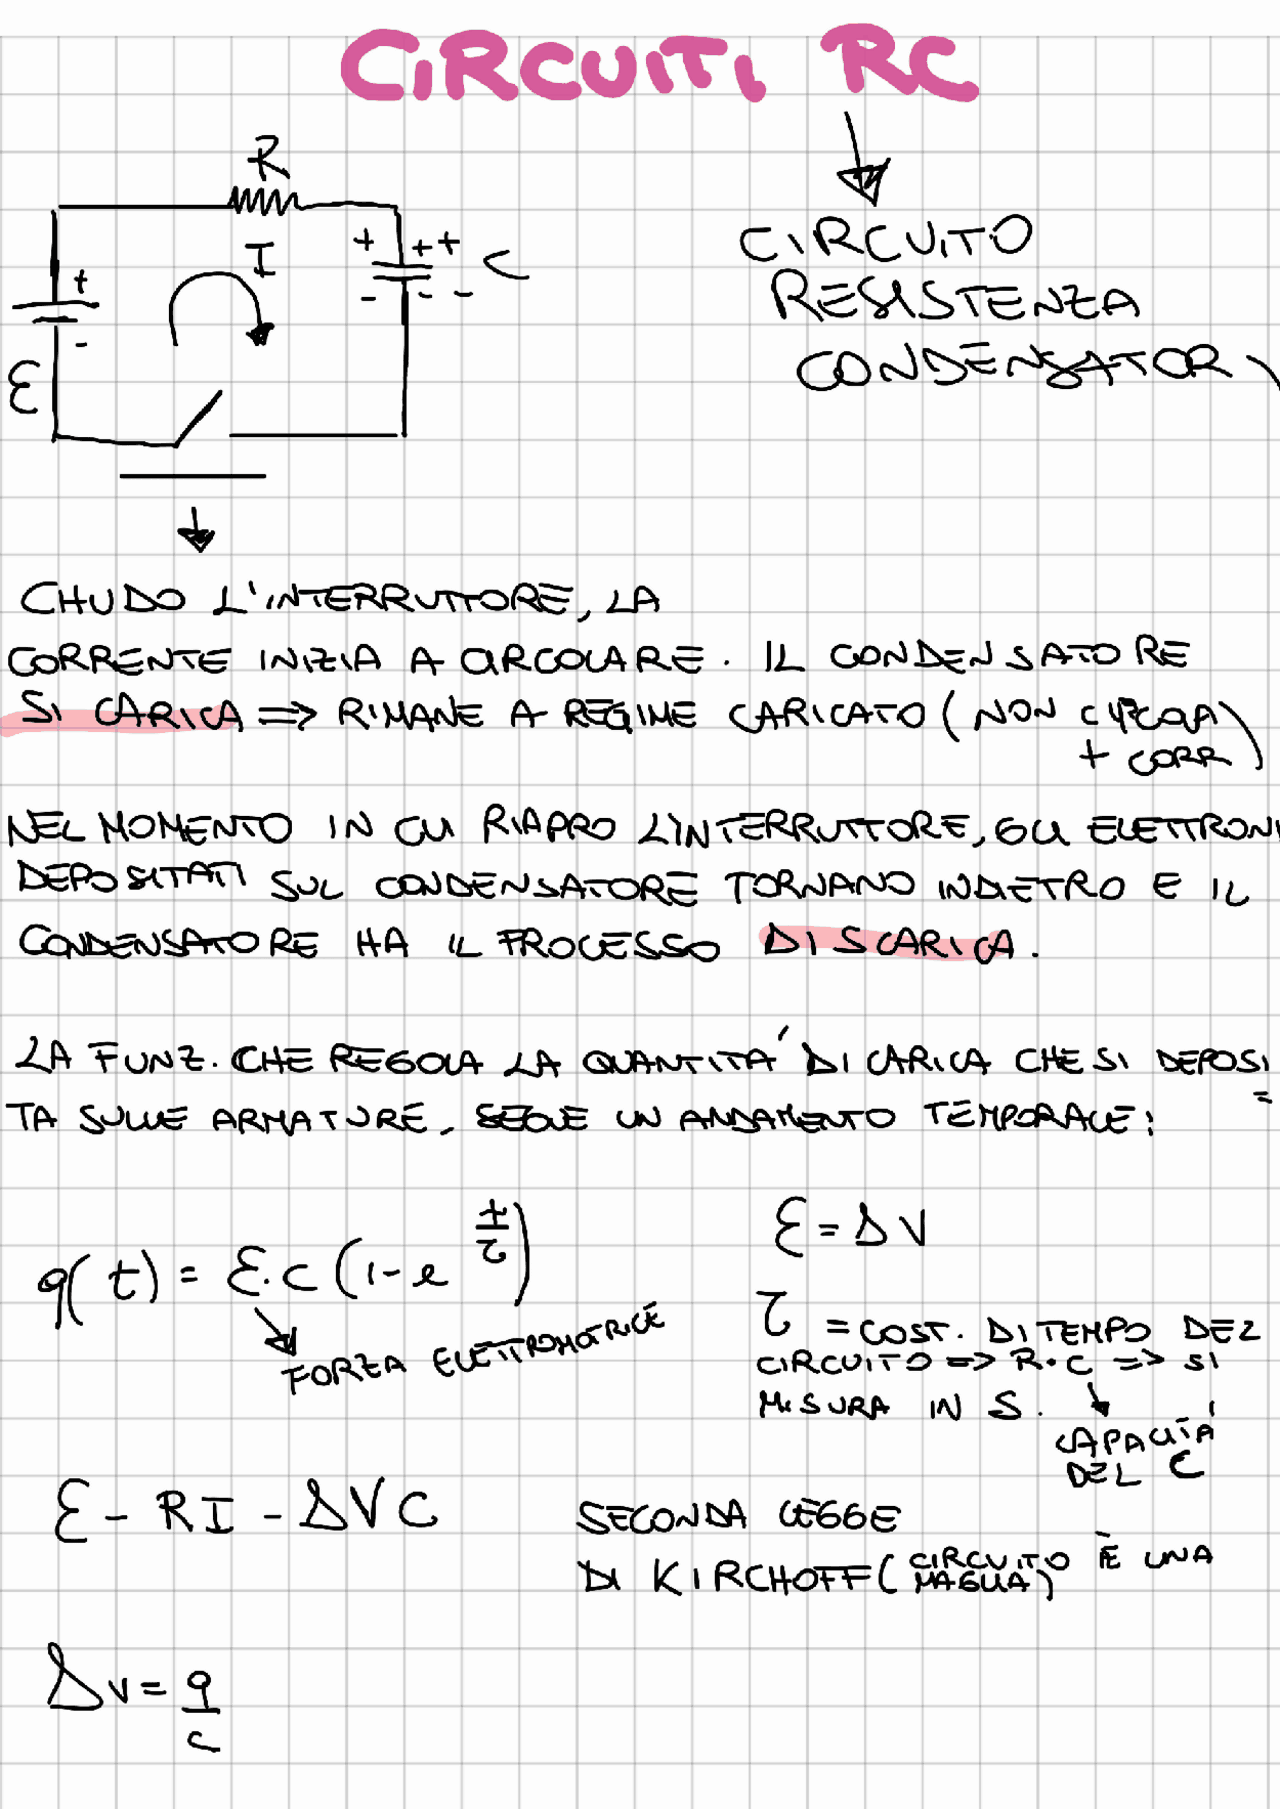 CIRCUITI RC
R
I
+ ++ C
- - -
+
-
ℰ
CIRCUITO
RESISTENZA
CONDENSATORI
CHIUDO L'INTERRUTTORE, LA
CORRENTE INIZIA A CIRCOLARE. IL CONDENSATORE
SI CARICA => RIMANE A REGIME CARICATO (NON CIRCOLA
+ CORR)
NEL MOMENTO IN CUI RIAPRO L'INTERRUTTORE, GLI ELETTRONI
DEPOSITATI SUL CONDENSATORE TORNANO INDIETRO E IL
CONDENSATORE HA IL PROCESSO DI SCARICA.
LA FUNZ. CHE REGOLA LA QUANTITA' DI CARICA CHE SI DEPOSI=
TA SULLE ARMATURE, SEGUE UN ANDAMENTO TEMPORALE:
q(t) = ℰ·C (1-e^(t/τ))
FORZA ELETTROMOTRICE
ℰ = ΔV
τ = COST. DI TEMPO DEL
CIRCUITO => R·C => SI
MISURA IN S.
CAPACITA'
DEL C
ℰ - RI - ΔVC
SECONDA LEGGE
DI KIRCHOFF (CIRCUITO È UNA
MAGLIA)
ΔV = q/C